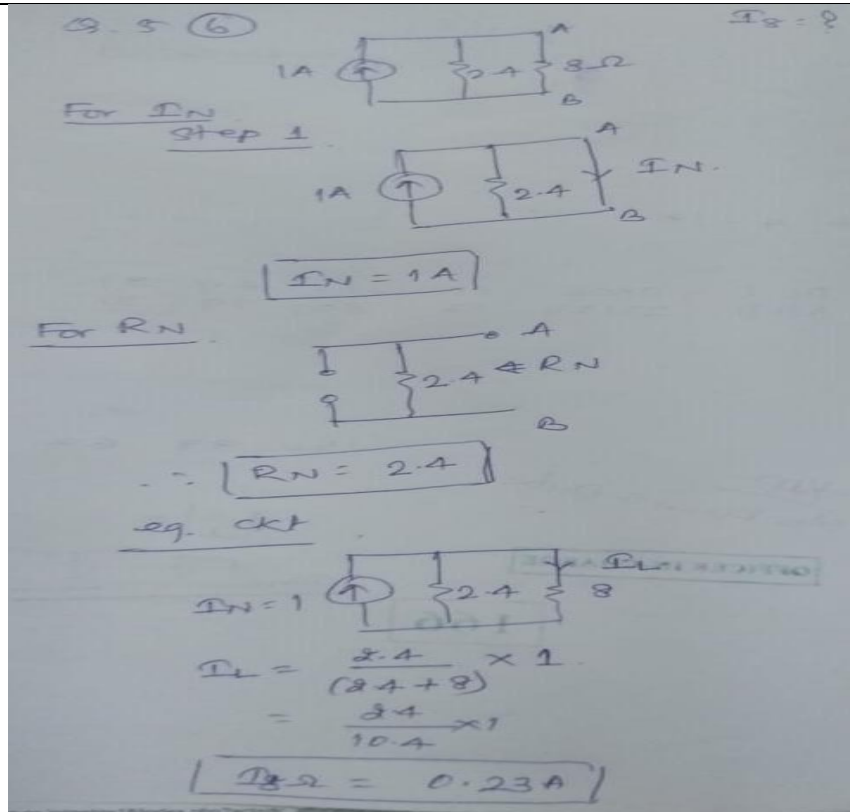 Q. 5 (6) I8 = ?
1A 2.4 8Ω A B
For IN
Step 1
1A 2.4 A B IN.
IN = 1A
For RN
A
2.4 ← RN
B
∴ RN = 2.4
eq. ckt
IN = 1 2.4 8 IL
IL = 2.4 / (2.4 + 8) × 1
= 2.4 / 10.4 × 1
I8Ω = 0.23A